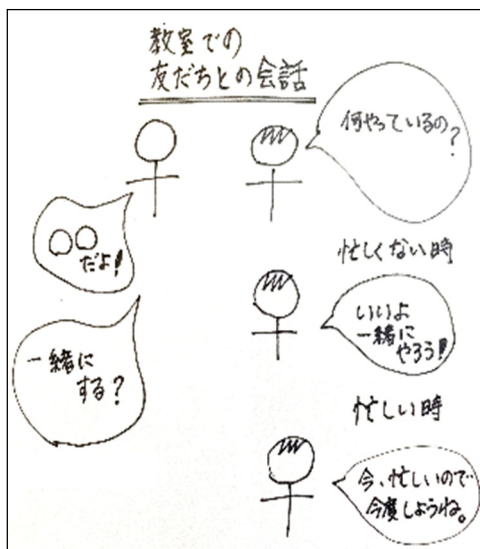 教室での
友だちとの会話
何やっているの?
○○
だよ!
一緒に
する?
忙しくない時
いいよ
一緒に
やろう!
忙しい時
今、忙しいので
今度しようね。